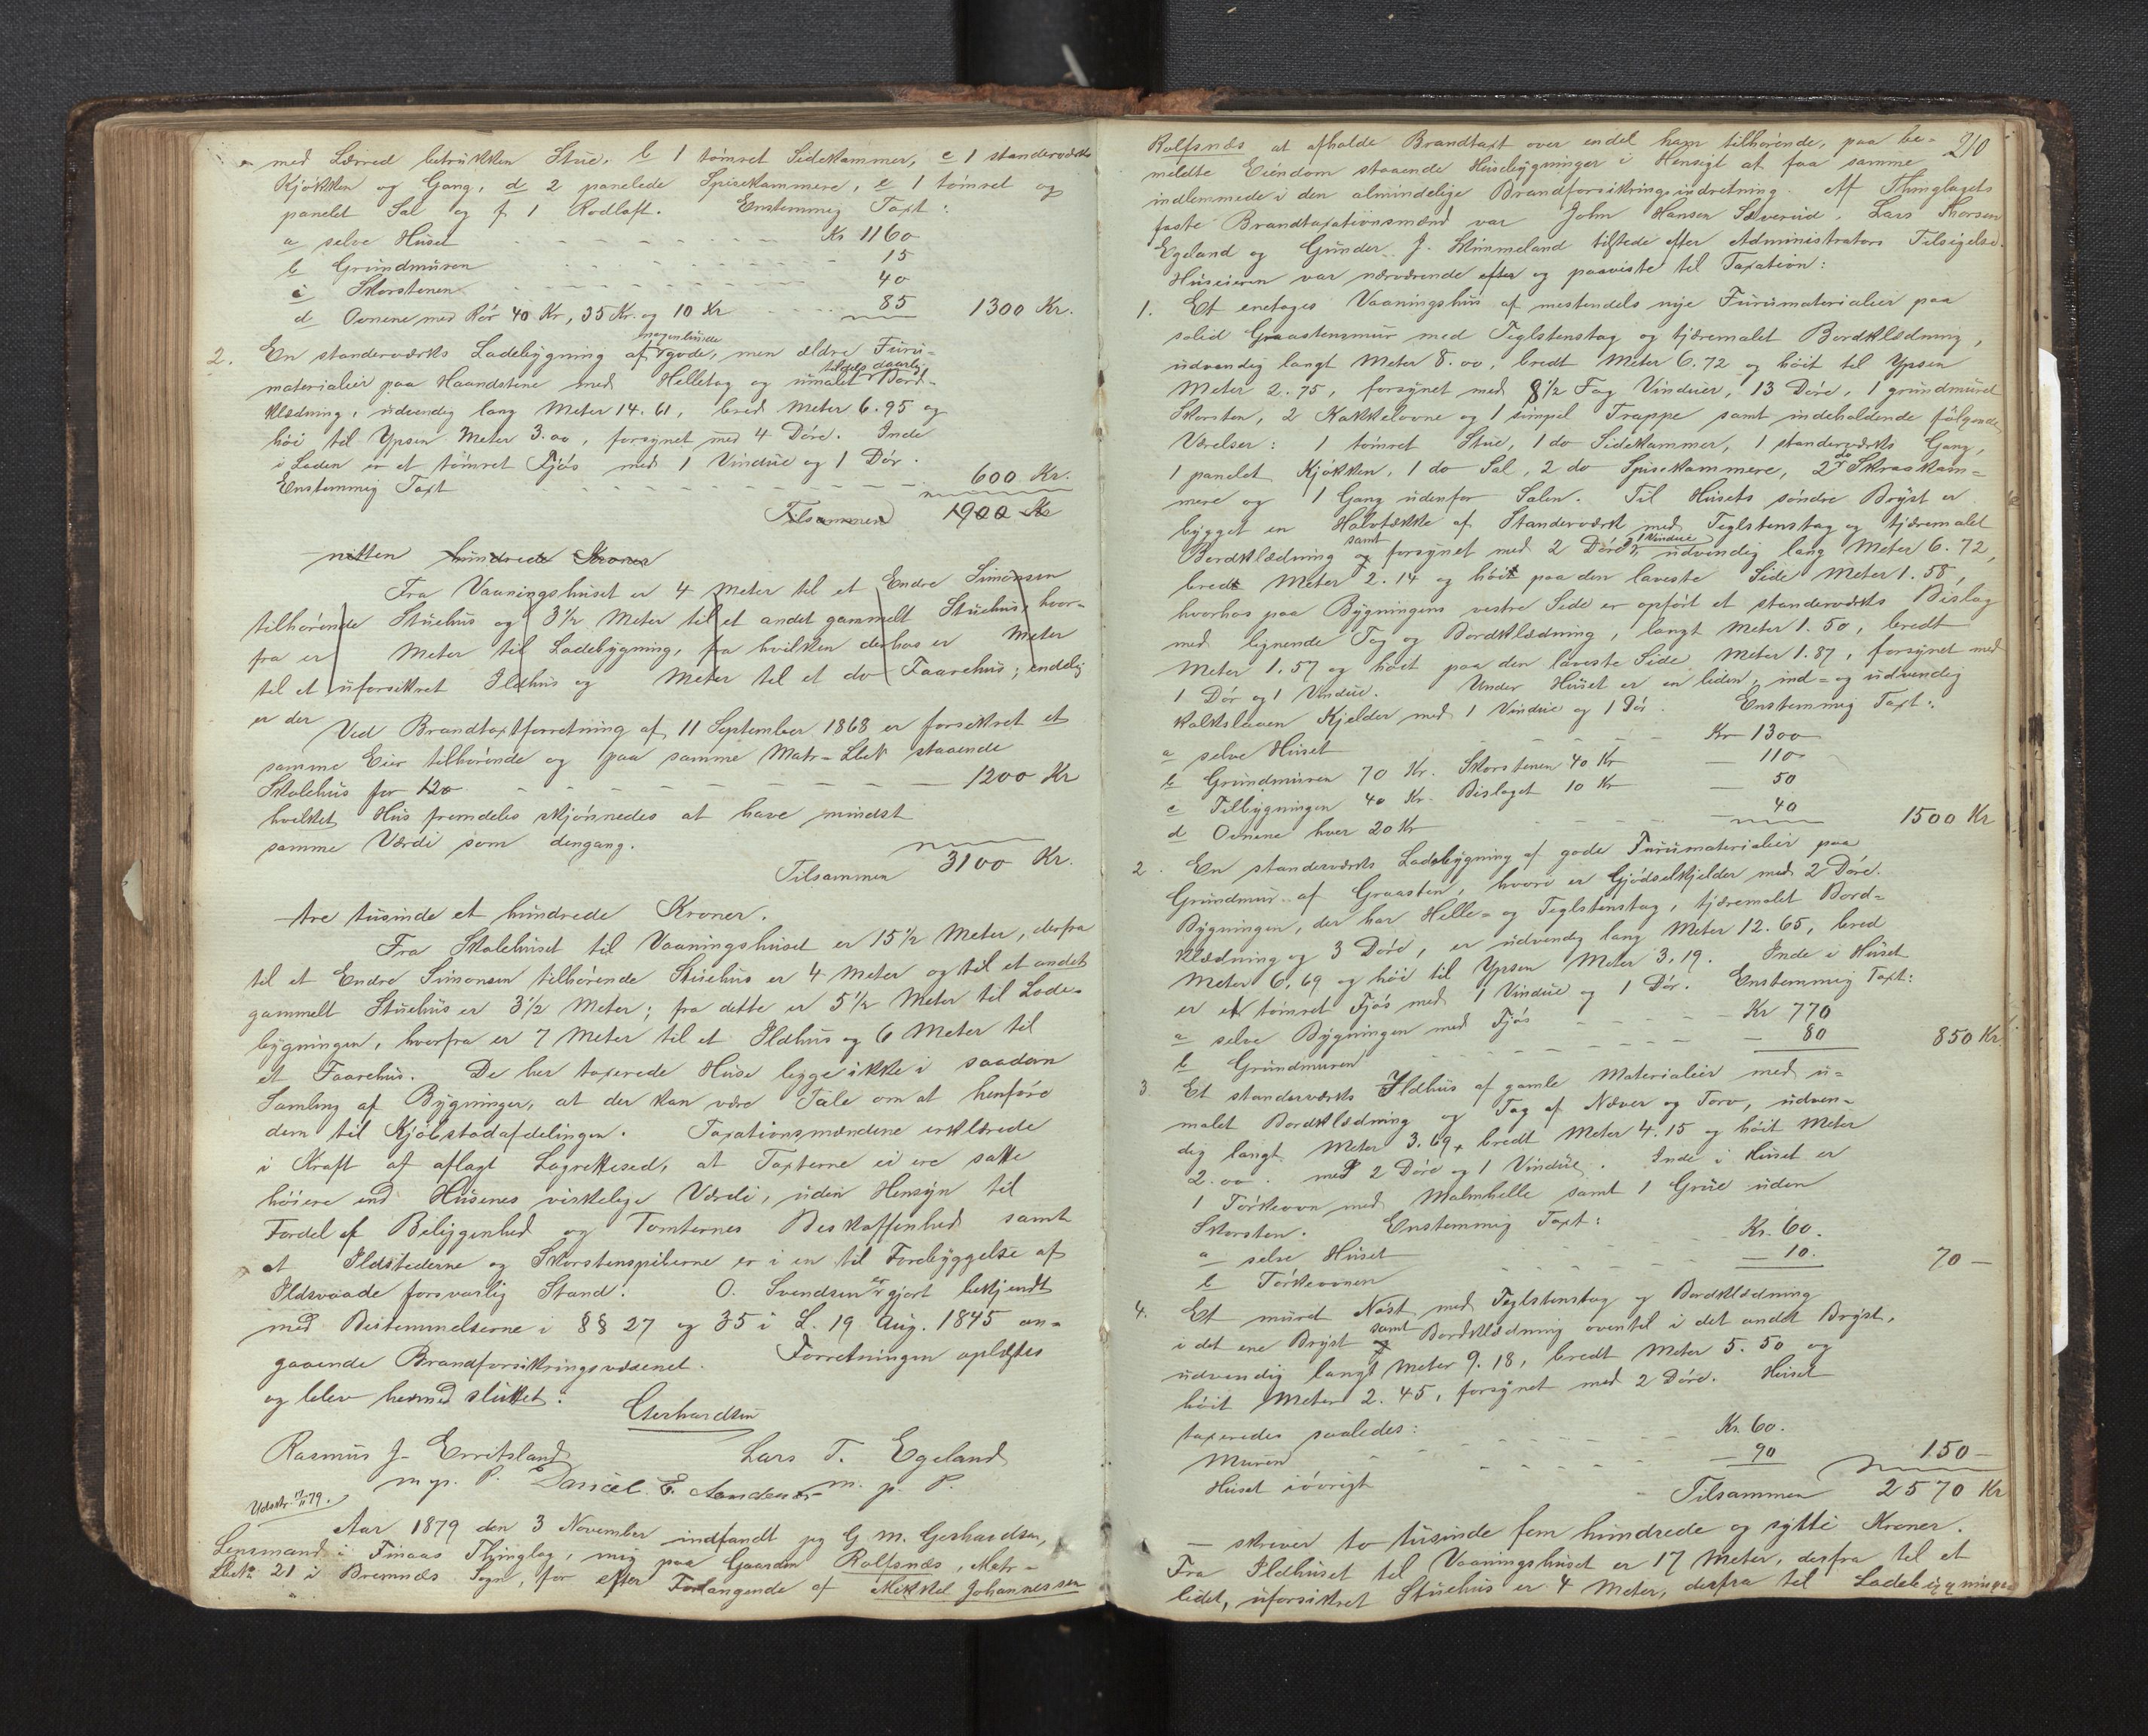 med Lærred betrukken Stue, b 1 tømret Sidekammer, c 1 standerværks
Kjøkken og Gang, d 2 panelede Spisekammere, e 1 tømret og
panelet Sal og f 1 Rodloft. Enstemmig Taxt:
a selve Huset Kr 1160
b Grundmuren 15
c Skorstenen 40
d Ovnene med Rør 40 Kr, 35 Kr. og 10 Kr 85 1300 Kr.
2. En standerværks Ladebygning af nogenlunde gode, men ældre Furu-
materialier paa Haandstene med Helletag og umalet tildels daarlig Bord-
klædning, udvendig lang Meter 14.61, bred Meter 6.95 og
høi til Ypsen Meter 3.00, forsynet med 4 Døre. Inde
i Laden er et tømret Fjøs med 1 Vindue og 1 Dør.
Enstemmig Taxt 600 Kr.
Tilsammen 1900 Kr
nitten hundrede Kroner
Fra Vaaningshuset er 4 Meter til et Endre Simonsen
tilhørende Stuehus og 3½ Meter til et andet gammelt Stuehus, hvor-
fra er Meter til Ladebygning, fra hvilken derhos er Meter
til et uforsikret Ildhus og Meter til et do Faarehus; endelig
er der
Ved Brandtaxtforretning af 11 September 1868 er forsikret et
samme Eier tilhørende og paa samme Matr-Lbek staaende
Skolehus for 120 1200 Kr
hvilket Hus fremdeles skjønnedes at have mindst
samme Værdi som dengang.
Tilsammen 3100 Kr.
tre tusinde et hundrede Kroner.
Fra Skolehuset til Vaaningshuset er 15½ Meter, derfra
til et Endre Simonsen tilhørende Stuehus er 4 Meter og til et andet
gammelt Stuehus er 3½ Meter; fra dette er 5½ Meter til Lade-
bygningen, hvorfra er 7 Meter til et Ildhus og 6 Meter til
et Faarehus. De her taxerede Huse ligge ikke i saadan
Samling af Bygninger, at der kan være Tale om at henføre
dem til Kjøbstadafdelingen. Taxationsmændene erklærede
i Kraft af aflagt Lagrettesed, at Taxterne ei ere satte
høiere end Husenes virkelige Værdi, uden Hensyn til
Fordel af Beliggenhed og Tomternes Beskaffenhed samt
at Ildstederne og Skorstenspiberne er i en til Forebyggelse af
Ildsvaade forsvarlig Stand. O. Svendsen er gjort bekjendt
med Bestemmelserne i §§ 27 og 35 i L. 19 Aug. 1845 an-
gaaende Brandforsikringsvæsenet. Forretningen oplæstes
og blev hermed sluttet.
Gerhardsen
Rasmus J. Erritsland Lars T. Egeland
m. p. P. Daniel E. m. p. P.
Udstr. 79.
Aar 1879 den 3 November indfandt jeg G. M. Gerhardsen,
Lensmand i Finaas Thinglag, mig paa Gaarden Rolfsnæs, Matr-
Lbek 21 i Bremnæs Sogn, for efter Forlangende af Mikkel Johannessen
210
Rolfsnæs at afholde Brandtaxt over endel ham tilhørende, paa be-
meldte Eiendom staaende Husebygninger i Hensigt at faa samme
indlemmede i den almindelige Brandforsikringsindretning. Af Thinglagets
faste Brandtaxationsmænd var John Hansen Sæverud, Lars Thorsen
Egeland og Gunder J. Skimmeland tilstede efter Administrators Tilsigelse.
Huseieren var nærværende efter og paaviste til Taxation:
1. Et enetages Vaaningshus af mestendels nye Furumaterialier paa
solid Graastensmur med Teglstenstag og tjæremalet Bordklædning,
udvendig langt Meter 8.00, bredt Meter 6.72 og høit til Ypsen
Meter 2.75, forsynet med 8½ Fag Vinduer, 13 Døre, 1 grundmuret
Skorsten, 2 Kakkelovne og 1 simpel Trappe samt indeholdende følgende
Værelser: 1 tømret Stue, 1 do Sidekammer, 1 standerværks Gang,
1 panelet Kjøkken, 1 do Sal, 2 do Spisekammere, 2 do Skraakam-
mere og 1 Gang udenfor Salen. Til Husets søndre Bryst er
bygget en Halvtække af Standerværk med Teglstenstag og tjæremalet
Bordklædning og samt forsynet med 2 Døre, 1 Vindue udvendig lang Meter 6.72,
bredt Meter 2.14 og høit paa den laveste Side Meter 1.58,
hvorhos paa Bygningens vestre Side er opført et standerværks Bislag
med lignende Tag og Bordklædning, langt Meter 1.50, bredt
Meter 1.57 og høit paa den laveste Side Meter 1.87, forsynet med
1 Dør og 1 Vindue. Under Huset er en liden, ind- og udvendig
kalkslaaen Kjelder med 1 Vindue og 1 Dør. Enstemmig Taxt:
a selve Huset Kr 1300
b Grundmuren 70 Kr. Skorstenen 40 Kr 110
c Tilbygningen 40 Kr. Bislaget 10 Kr 50
d Ovnene hver 20 Kr 40 1500 Kr
2. En standerværks Ladebygning af gode Furumaterialier paa
Grundmur af Graasten, hvori er Gjødselkjelder med 2 Døre.
Bygningen, der har Helle- og Teglstenstag, tjæremalet Bord-
klædning og 3 Døre, er udvendig lang Meter 12.65, bred
Meter 6.69 og høi til Ypsen Meter 3.19. Inde i Huset
er et tømret Fjøs med 1 Vindue og 1 Dør. Enstemmig Taxt:
a selve Bygningen med Fjøs Kr 770
b Grundmuren 80 850 Kr.
3. Et standerværks Ildhus af gamle Materialier med u-
malet Bordklædning og Tag af Næver og Torv, udven-
dig langt Meter 3.69, bredt Meter 4.15 og høit Meter
2.00. med 2 Døre og 1 Vindue. Inde i Huset er
1 Tørkeovn med Malmhelle samt 1 Grue uden
Skorsten. Enstemmig Taxt:
a selve Huset Kr. 60.
b Tørkeovnen 10. 70 —
4. Et muret Nøst med Teglstenstag og Bordklædning
i det ene Bryst og samt Bordklædning oventil i det andet Bryst,
udvendig langt Meter 9.18, bredt Meter 5.50 og
høit Meter 2.45, forsynet med 2 Døre. Huset
taxeredes saaledes:
Muren Kr. 60.
Huset iøvrigt 90 150 —
Tilsammen 2570 Kr
— skriver to tusinde fem hundrede og sytti Kroner.
Fra Ildhuset til Vaaningshuset er 17 Meter, derfra til et
lidet, uforsikret Stuehus er 4 Meter, derfra til Ladebygningen